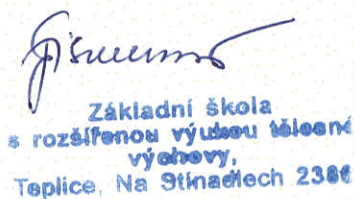 Základní škola
s rozšířenou výukou tělesné
výchovy,
Teplice, Na Stínadlech